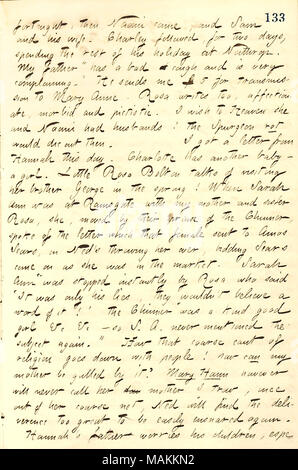 133
fortnight, then Naomi came, and Sam
and his wife. Charley followed for two days,
spending the rest of his holiday at Neithrop.
My father has a bad cough and is very
complaining. He sends me £5 for transmis-
sion to Mary Anne. Rosa writes too, affection
ate, morbid and pietistic. I wish to Heaven she
and Naomi had husbands! the Spurgeon rot
would die out then. I got a letter from
Hannah this day. Charlotte has another baby -
a girl. Little Rosa Bolton talks of visiting
her brother George in the spring! When Sarah
Ann was at Ramsgate with my mother and sister
Rosa, she, moved by their praise of the Chinner
spoke of the letter which that female sent to Amos
Sears, on Ned's throwing her over adding Sears
came on as she was in the market. Sarah
Ann was stopped instantly by Rosa who said
"It was only his lies - they wouldn't believe a
word of it"! the Chinner was a true good
girl &c &c - so S. A. never mentioned the
subject again. How that coarse cant of
religion goes down with people! how can my
mother be gulled by it? Mary Hann however
will never call her mother I trust, once
out of her course not. Ned will find the deli-
verance too great to be easily ensnared again.
Hannah's father worries his children, espe
alamy
Image ID: MAKKN2
www.alamy.com